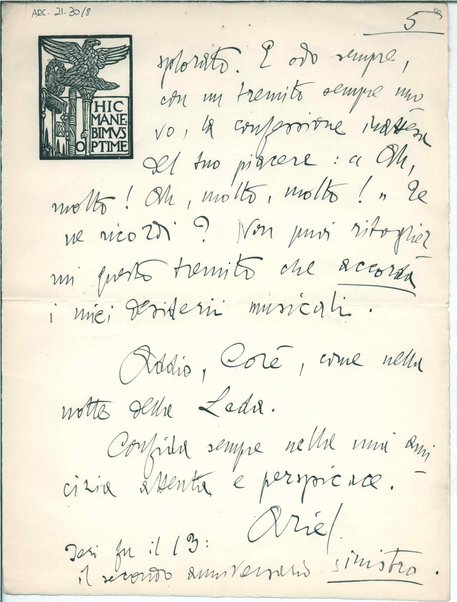 ARC. 21.30/8
5
HIC
MANE
BIMVS
OPTIME
splorato. E odo sempre,
con un tremito sempre nuo
vo, la confessione inattesa
del tuo piacere: « Oh,
molto! Oh, molto, molto! » Te
ne ricordi? Non puoi ritoglier
mi questo tremito che accorda
i miei desiderii musicali.
Addio, Corè, come nella
notte della Leda.
Confida sempre nella mia ami
cizia attenta e perspicace.
Ariel
Ieri fu il 13:
il secondo anniversario sinistro.